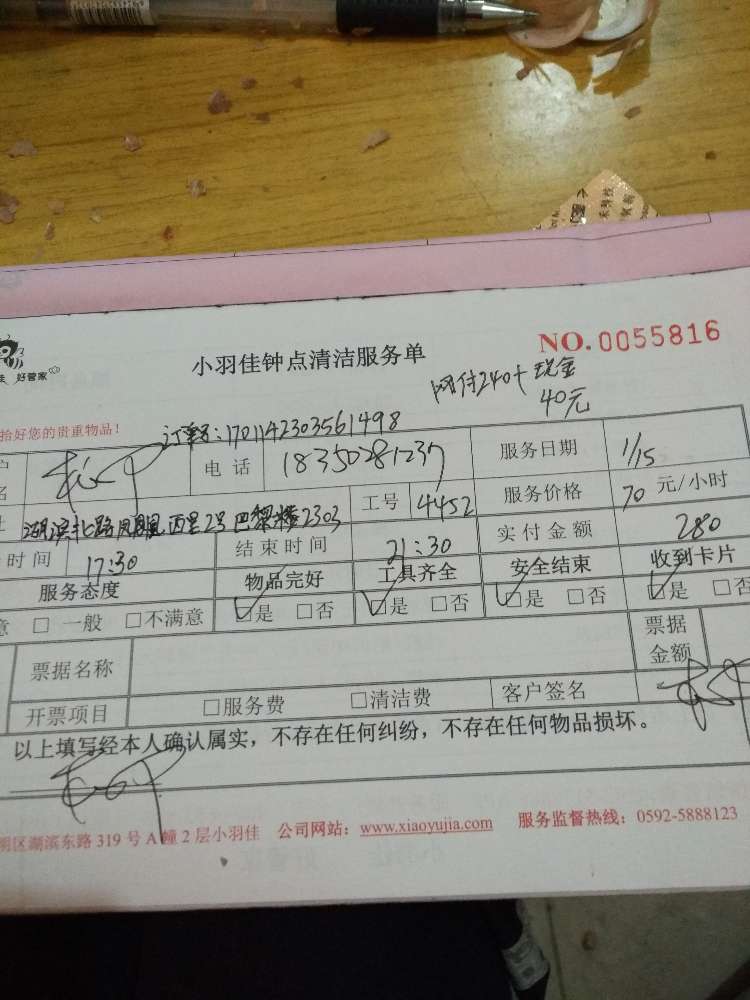 好管家
小羽佳钟点清洁服务单
NO.0055816
网付240+现金
40元
抬好您的贵重物品!
订单号:1701142303561498
户
名
电话
18350281237
服务日期
1/15
址
湖滨北路凤凰西里2号巴黎楼2303
工号
4452
服务价格
70 元/小时
时间
17:30
结束时间
21:30
实付金额
280
服务态度
物品完好
工具齐全
安全结束
收到卡片
意 □ 一般 □不满意
☑是 □否
☑是 □否
☑是 □否
☑是 □否
票据名称
票据
金额
开票项目
□服务费
□清洁费
客户签名
以上填写经本人确认属实,不存在任何纠纷,不存在任何物品损坏。
明区湖滨东路319号A幢2层小羽佳 公司网站:www.xiaoyujia.com 服务监督热线:0592-5888123